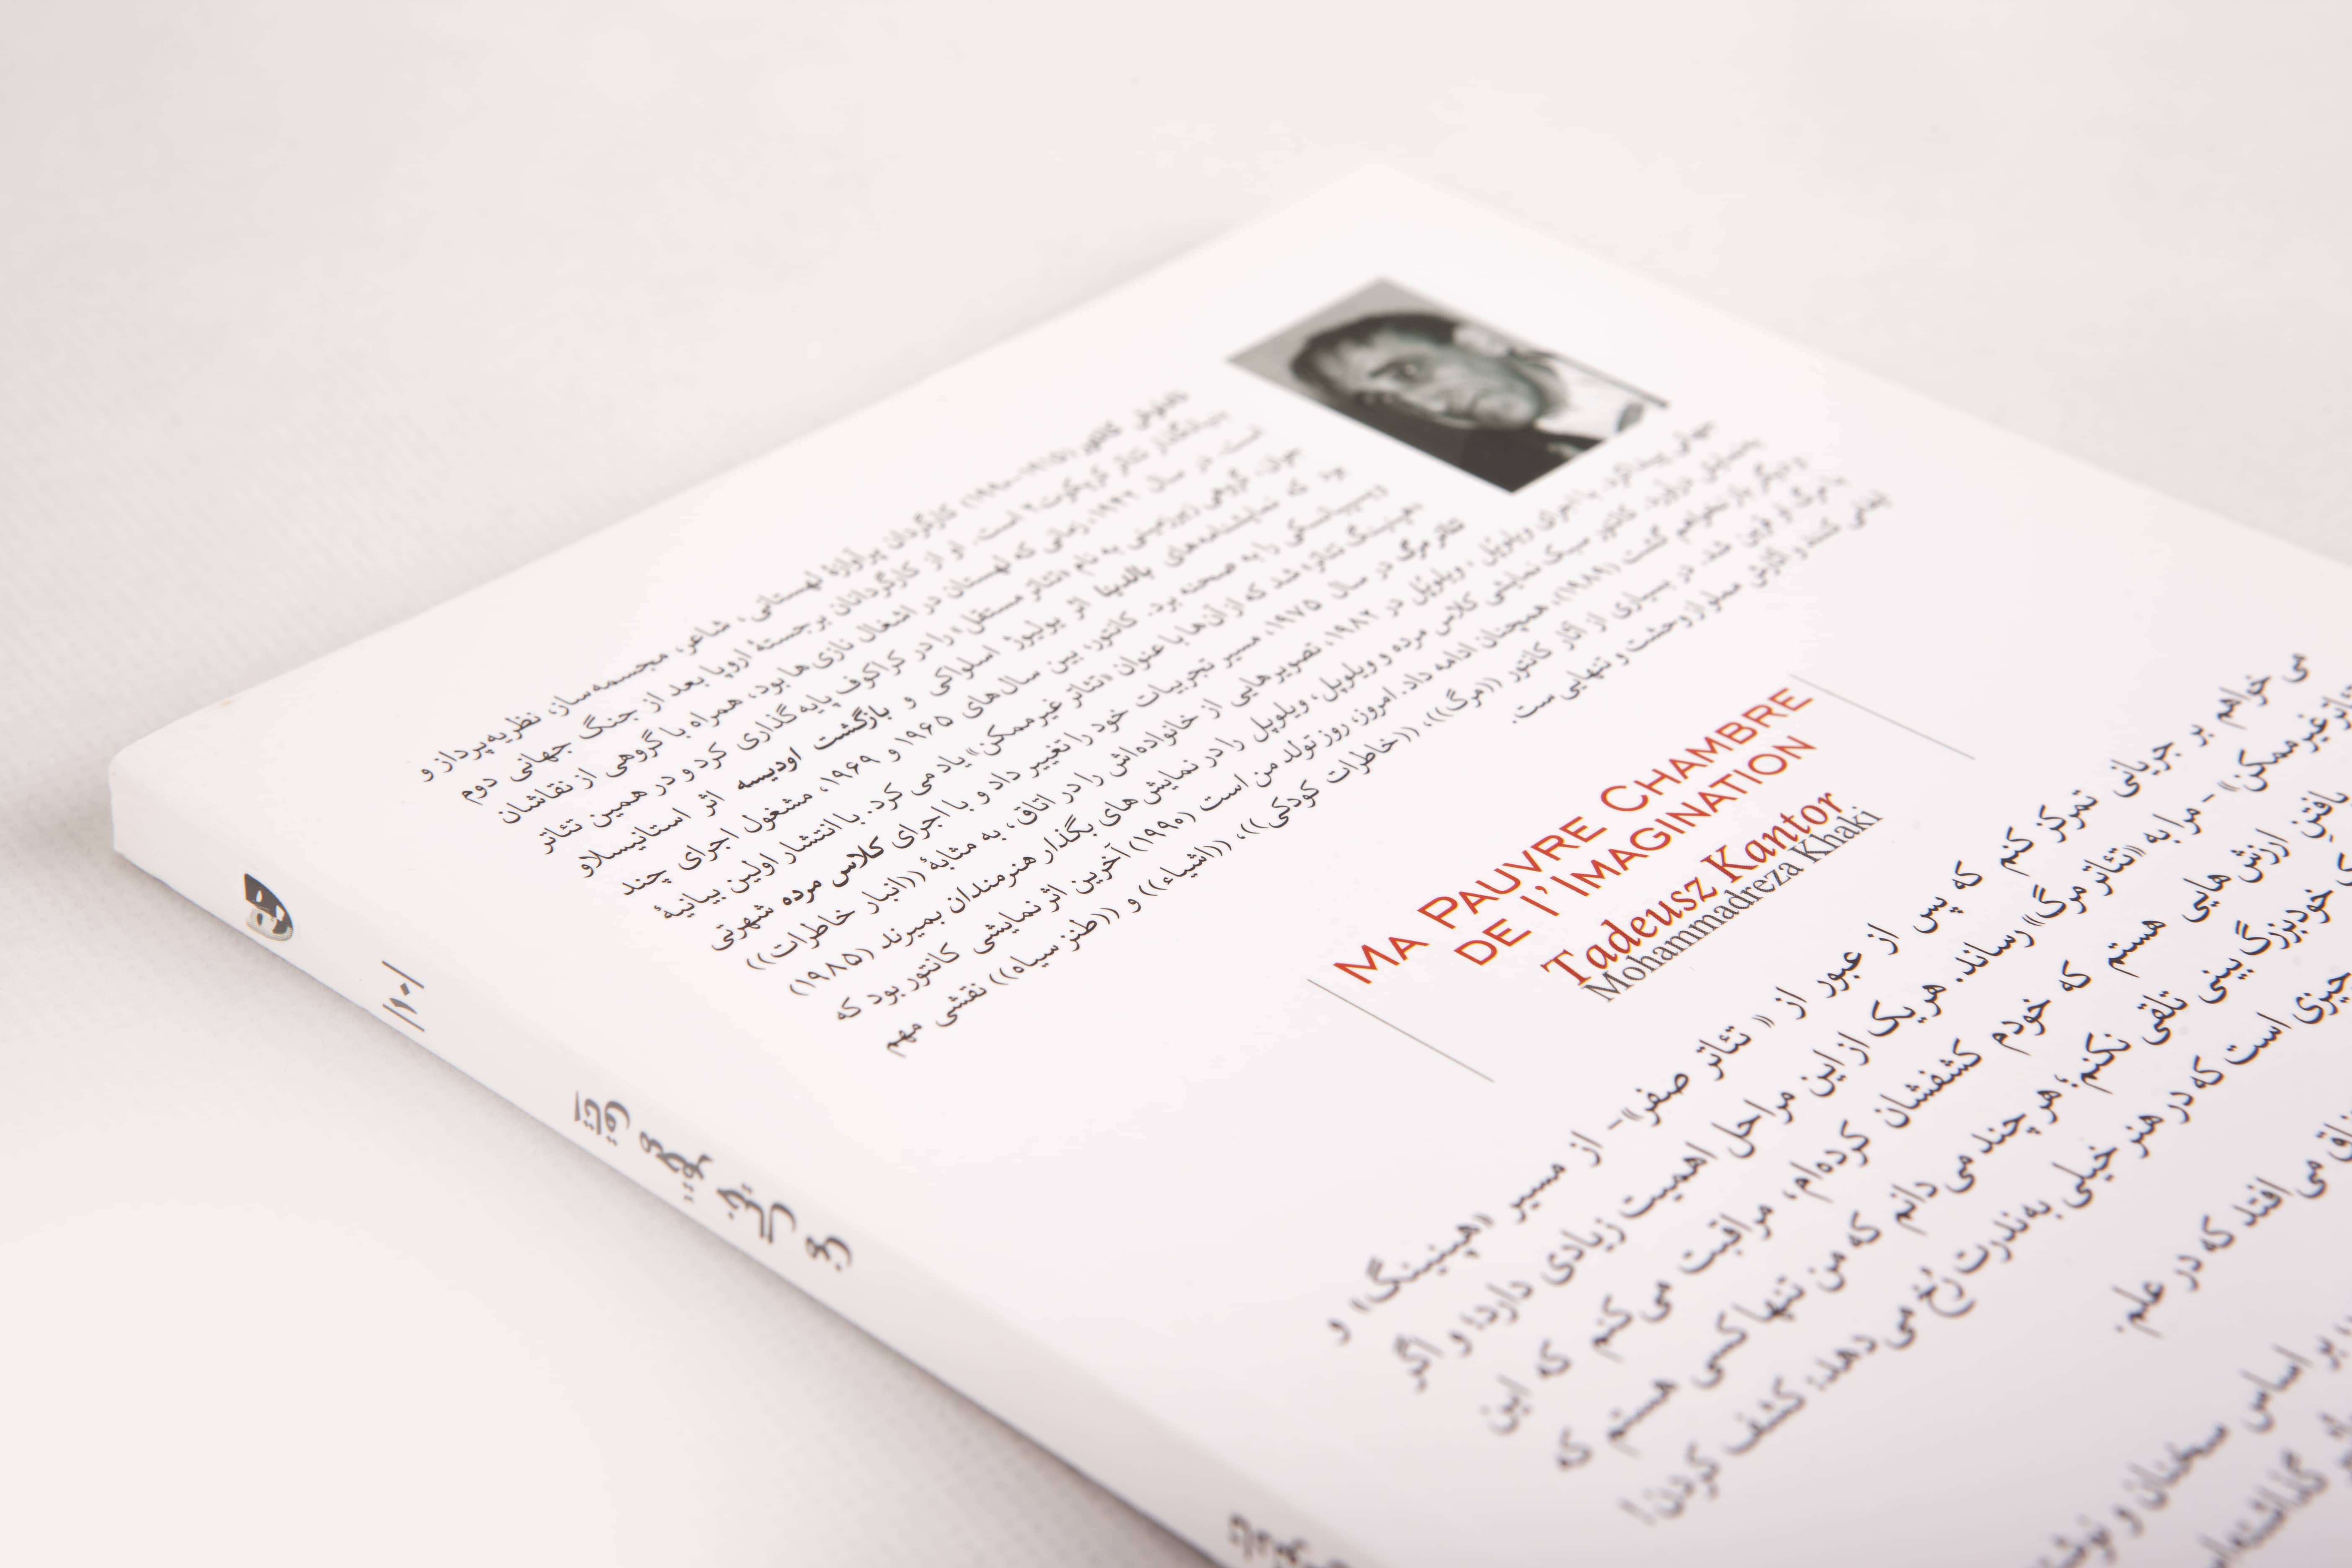 تادئوش کانتور (۱۹۱۵-۱۹۹۰) کارگردان پرآوازهٔ لهستانی، شاعر، مجسمه‌ساز، نظریه‌پرداز و
بنیانگذار تئاتر کریکوت۲ است. او از کارگردانان برجستهٔ اروپا بعد از جنگ جهانی دوم
است. در سال ۱۹۴۲، زمانی که لهستان در اشغال نازی‌ها بود، همراه با گروهی از نقاشان
جوان، گروهی زیرزمینی به نام «تئاتر مستقل» را در کراکوف پایه‌گذاری کرد و در همین تئاتر
بود که نمایشنامه‌های بالادینا اثر یولیوژ اسلواکی و بازگشت اودیسه اثر استانیسلاو
ویسپیانسکی را به صحنه برد. کانتور، بین سال‌های ۱۹۶۵ و ۱۹۶۹، مشغول اجرای چند
«هپنینگ تئاتر» شد که از آن‌ها با عنوان «تئاتر غیرممکن» یاد می کرد. با انتشار اولین بیانیهٔ
تئاتر مرگ در سال ۱۹۷۵، مسیر تجربیات خود را تغییر داد و با اجرای کلاس مرده شهرتی
جهانی پیدا کرد. با اجرای ویلوپل، ویلوپل در ۱۹۸۲، تصویرهایی از خانواده‌اش را در اتاق، به مثابهٔ ((انبار خاطرات))
به‌نمایش درآورد. کانتور سبک نمایشی کلاس مرده و ویلوپل، ویلوپل را در نمایش های بگذار هنرمندان بمیرند (۱۹۸۵)
و دیگر باز نخواهم گشت (۱۹۸۹)، همچنان ادامه داد. امروز، روز تولد من است (۱۹۹۰) آخرین اثر نمایشی کانتور بود که
با مرگ او قرین شد. در بسیاری از آثار کانتور ((مرگ))، ((خاطرات کودکی))، ((اشیاء)) و ((طنز سیاه)) نقشی مهم
ایفا می کنند و آثارش مملو از وحشت و تنهایی ست.
MA PAUVRE CHAMBRE
DE L'IMAGINATION
Tadeusz Kantor
Mohammadreza Khaki
می خواهم بر جریانی تمرکز کنم که پس از عبور از « تئاتر صفر»- از مسیر «هپنینگ» و
تئاتر غیرممکن» - مرا به «تئاتر مرگ» رساند. هر یک از این مراحل اهمیت زیادی دارد؛ و اگر
یافتن ارزش هایی هستم که خودم کشفشان کرده‌ام، مراقبت می کنم که این
خودبزرگ بینی تلقی نکنم؛ هر چند می دانم که من تنها کسی هستم که
چیزی است که در هنر خیلی به‌ندرت رُخ می دهد: کشف کردن!
می افتد که در علم.
بر اساس سخنان و
|۱۰|
اتاق محقر تخیل من